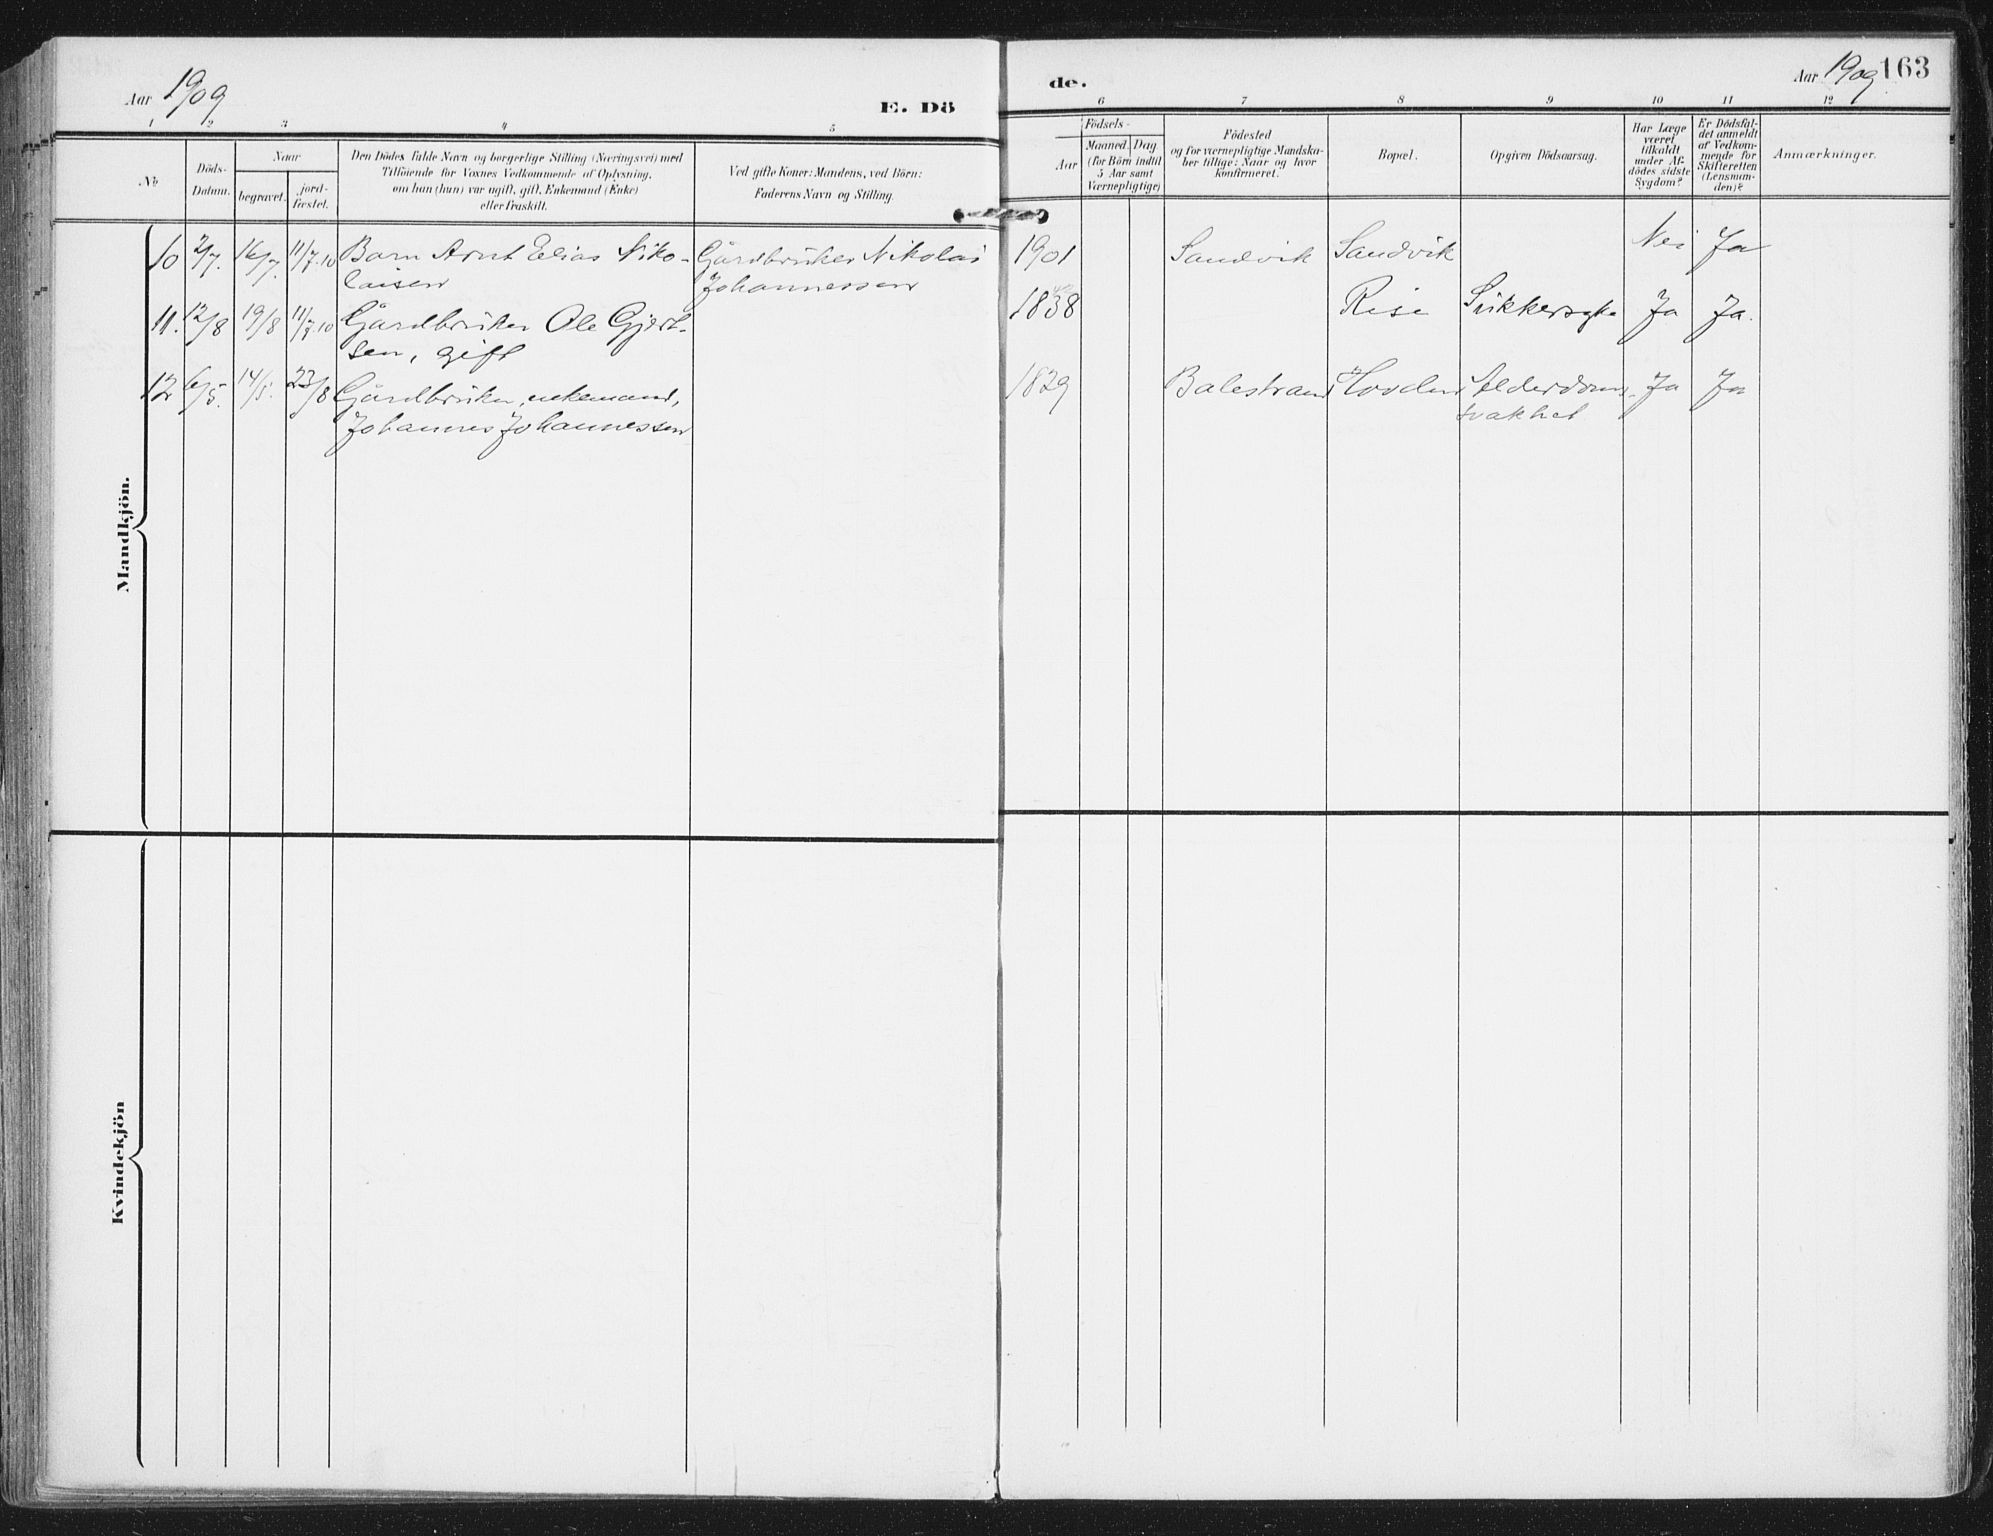 Aar 1909
E. Dö
de.
Aar 1909
163
1 2 3 4 5
6 7 8 9 10 11 12
No
Döds-
Datum.
Naar
begravet.
jord-
fæstet.
Den Dödes fulde Navn og borgerlige Stilling (Næringsvei) med
Tilföiende for Voxnes Vedkommende af Oplysning,
om han (hun) var ugift, gift, Enkemand (Enke)
eller fraskilt.
Ved gifte Koner: Mandens, ved Börn:
Faderens Navn og Stilling.
Födsels-
Aar
Maaned. Dag
(for Börn indtil
5 Aar samt
Værnepligtige)
Födested
og for værnepligtige Mandska-
ber tillige: Naar og hvor
konfirmeret.
Bopæl.
Opgiven Dödsaarsag.
Har Læge
været
tilkaldt
under Af-
dödes sidste
Sygdom?
Er Dödsfal-
det anmeldt
af Vedkom-
mende for
Skifteretten
(Lensman-
den)?
Anmærkninger.
Mandkjön.
10 2/7. 16/7. 11/7.10 Barn Arnt Elias Niko- Gårdbruker Nikolai 1901 Sandvik Sandvik Nei Ja
laisen Johannessen
11. 12/8 19/8 11/7.10 Gårdbruker Ole Gjert- 1838 Rise Sukkersyke Ja Ja.
sen, gift
12 6/5. 14/5. 23/8 Gårdbruker, enkemand, 1829 Balestrand Hovden Alderdoms- Ja Ja
Johannes Johannessen svakhet
Kvindekjön